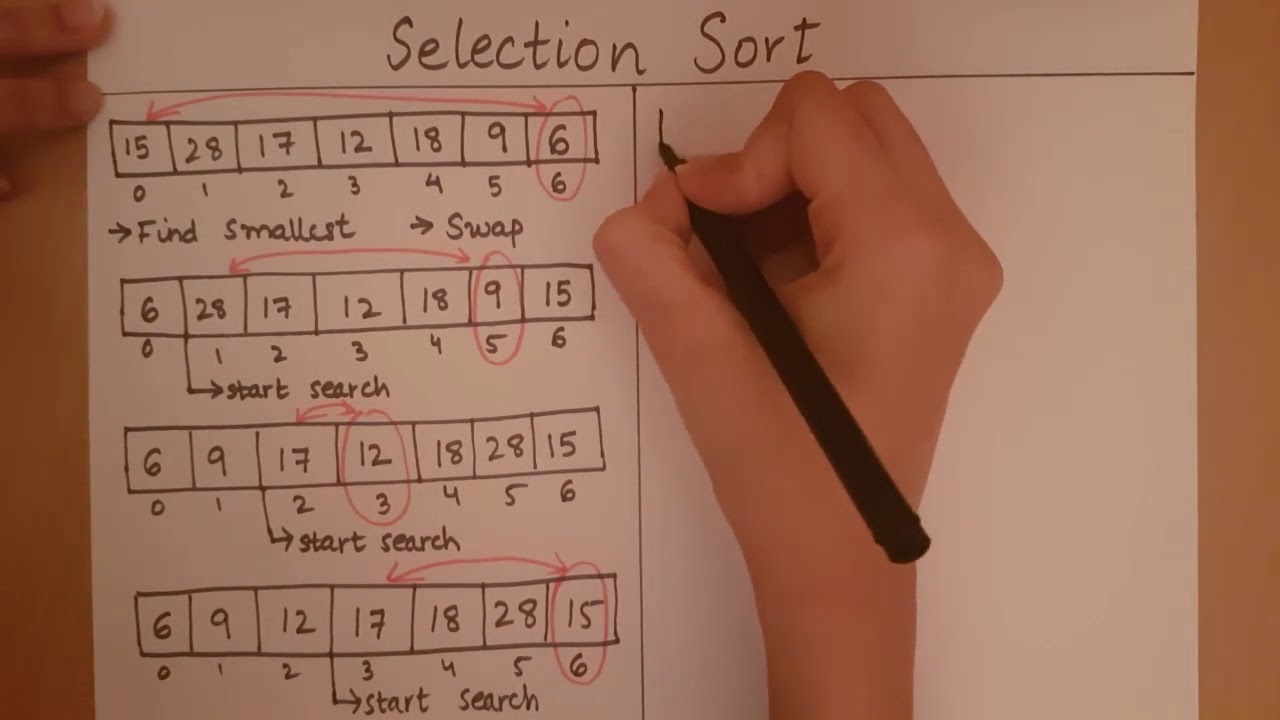 Selection Sort
15 28 17 12 18 9 6
0 1 2 3 4 5 6
→Find smallest → Swap
6 28 17 12 18 9 15
0 1 2 3 4 5 6
→start search
6 9 17 12 18 28 15
0 1 2 3 4 5 6
→start search
6 9 12 17 18 28 15
0 1 2 3 4 5 6
→start search